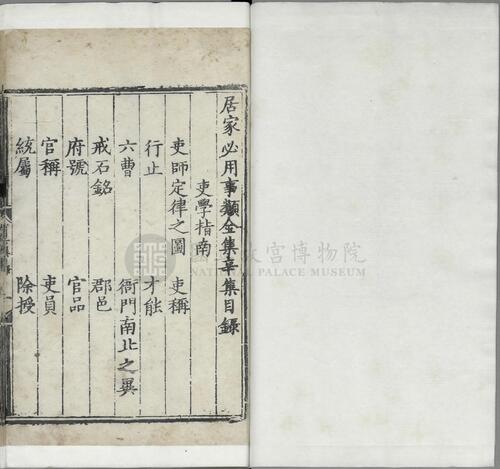 居家必用事類全集辛集目錄
吏學指南
吏師定律之圖 吏稱
行止 才能
六曹 衙門南北之異
戒石銘 郡邑
府號 官品
官稱 吏員
統屬 除授
故宮博物院
NATIONAL PALACE MUSEUM